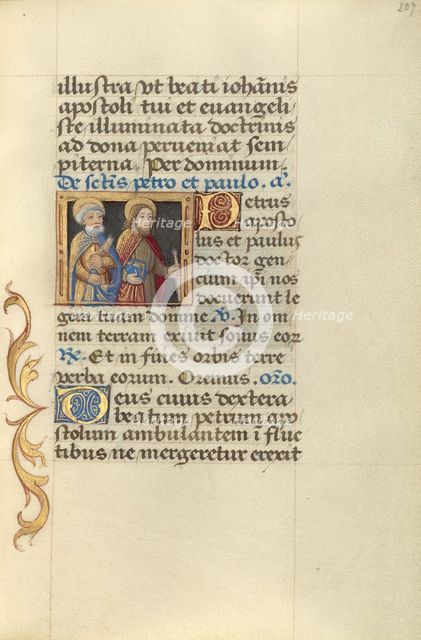 207
illustra ut beati iohānis
apostoli tui et euangeli
ste illuminata doctrinis
ad dona perueniat sem
piterna. Per dominum.
De sctīs petro et paulo. a.
Petrus
aposto
lus et paulus
doctor gen
cium ip̄i nos
docuerunt le
gem tuam domine. V. In om
nem terram exiuit sonus eor
R. Et in fines orbis terre
verba eorum. Oremus. oro.
Deus cuius dextera
beatum petrum apo
stolum ambulantem ī fluc
tibus ne mergeretur erexit
Heritage
Heritage
Heritage
Heritage